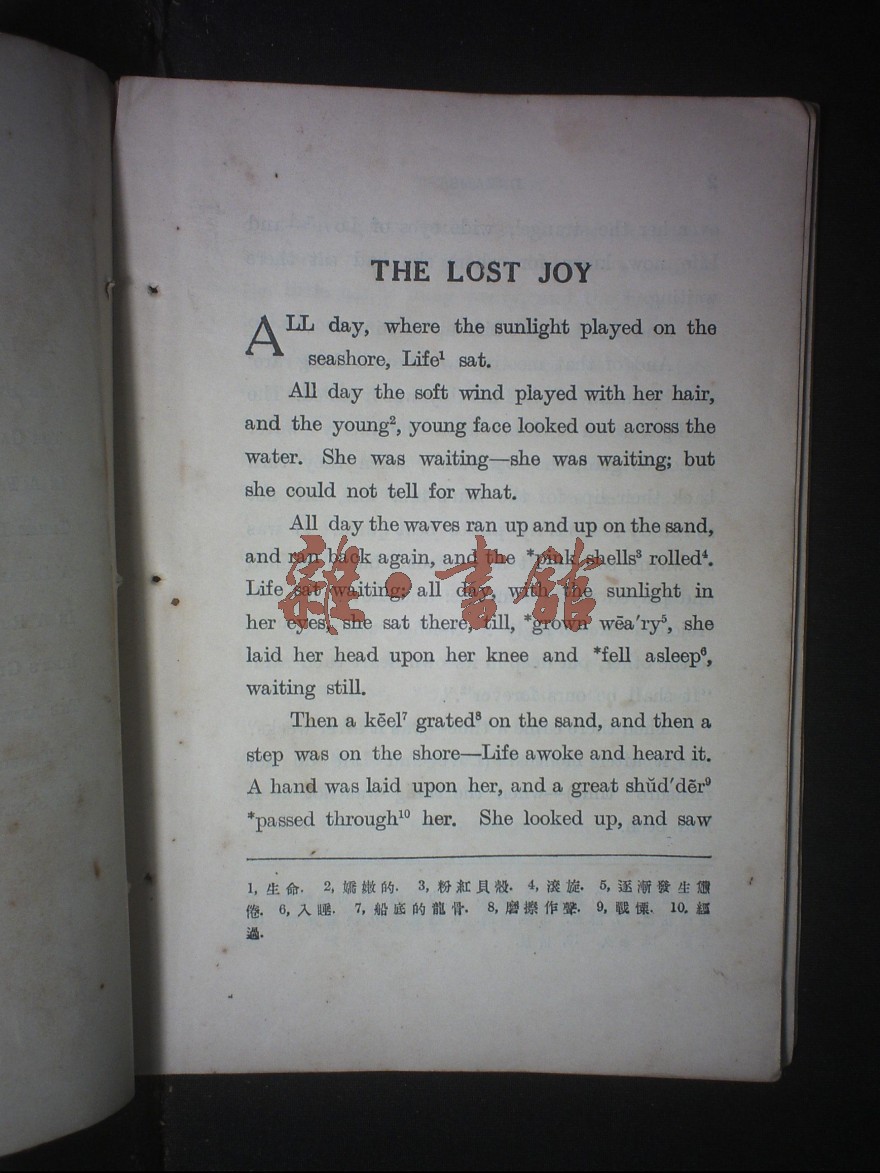 THE LOST JOY
ALL day, where the sunlight played on the
seashore, Life¹ sat.
All day the soft wind played with her hair,
and the young², young face looked out across the
water. She was waiting—she was waiting; but
she could not tell for what.
All day the waves ran up and up on the sand,
and ran back again, and the *pink shells³ rolled⁴.
Life sat waiting; all day, with the sunlight in
her eyes, she sat there, till, *grown wēa′ry⁵, she
laid her head upon her knee and *fell asleep⁶,
waiting still.
Then a kēel⁷ grated⁸ on the sand, and then a
step was on the shore—Life awoke and heard it.
A hand was laid upon her, and a great shŭd′dẽr⁹
*passed through¹⁰ her. She looked up, and saw
1, 生命. 2, 嬌嫩的. 3, 粉紅貝殼. 4, 滾旋. 5, 逐漸發生
倦. 6, 入睡. 7, 船底的龍骨. 8, 磨擦作聲. 9, 戰慄. 10. 經
過.
雜·書館